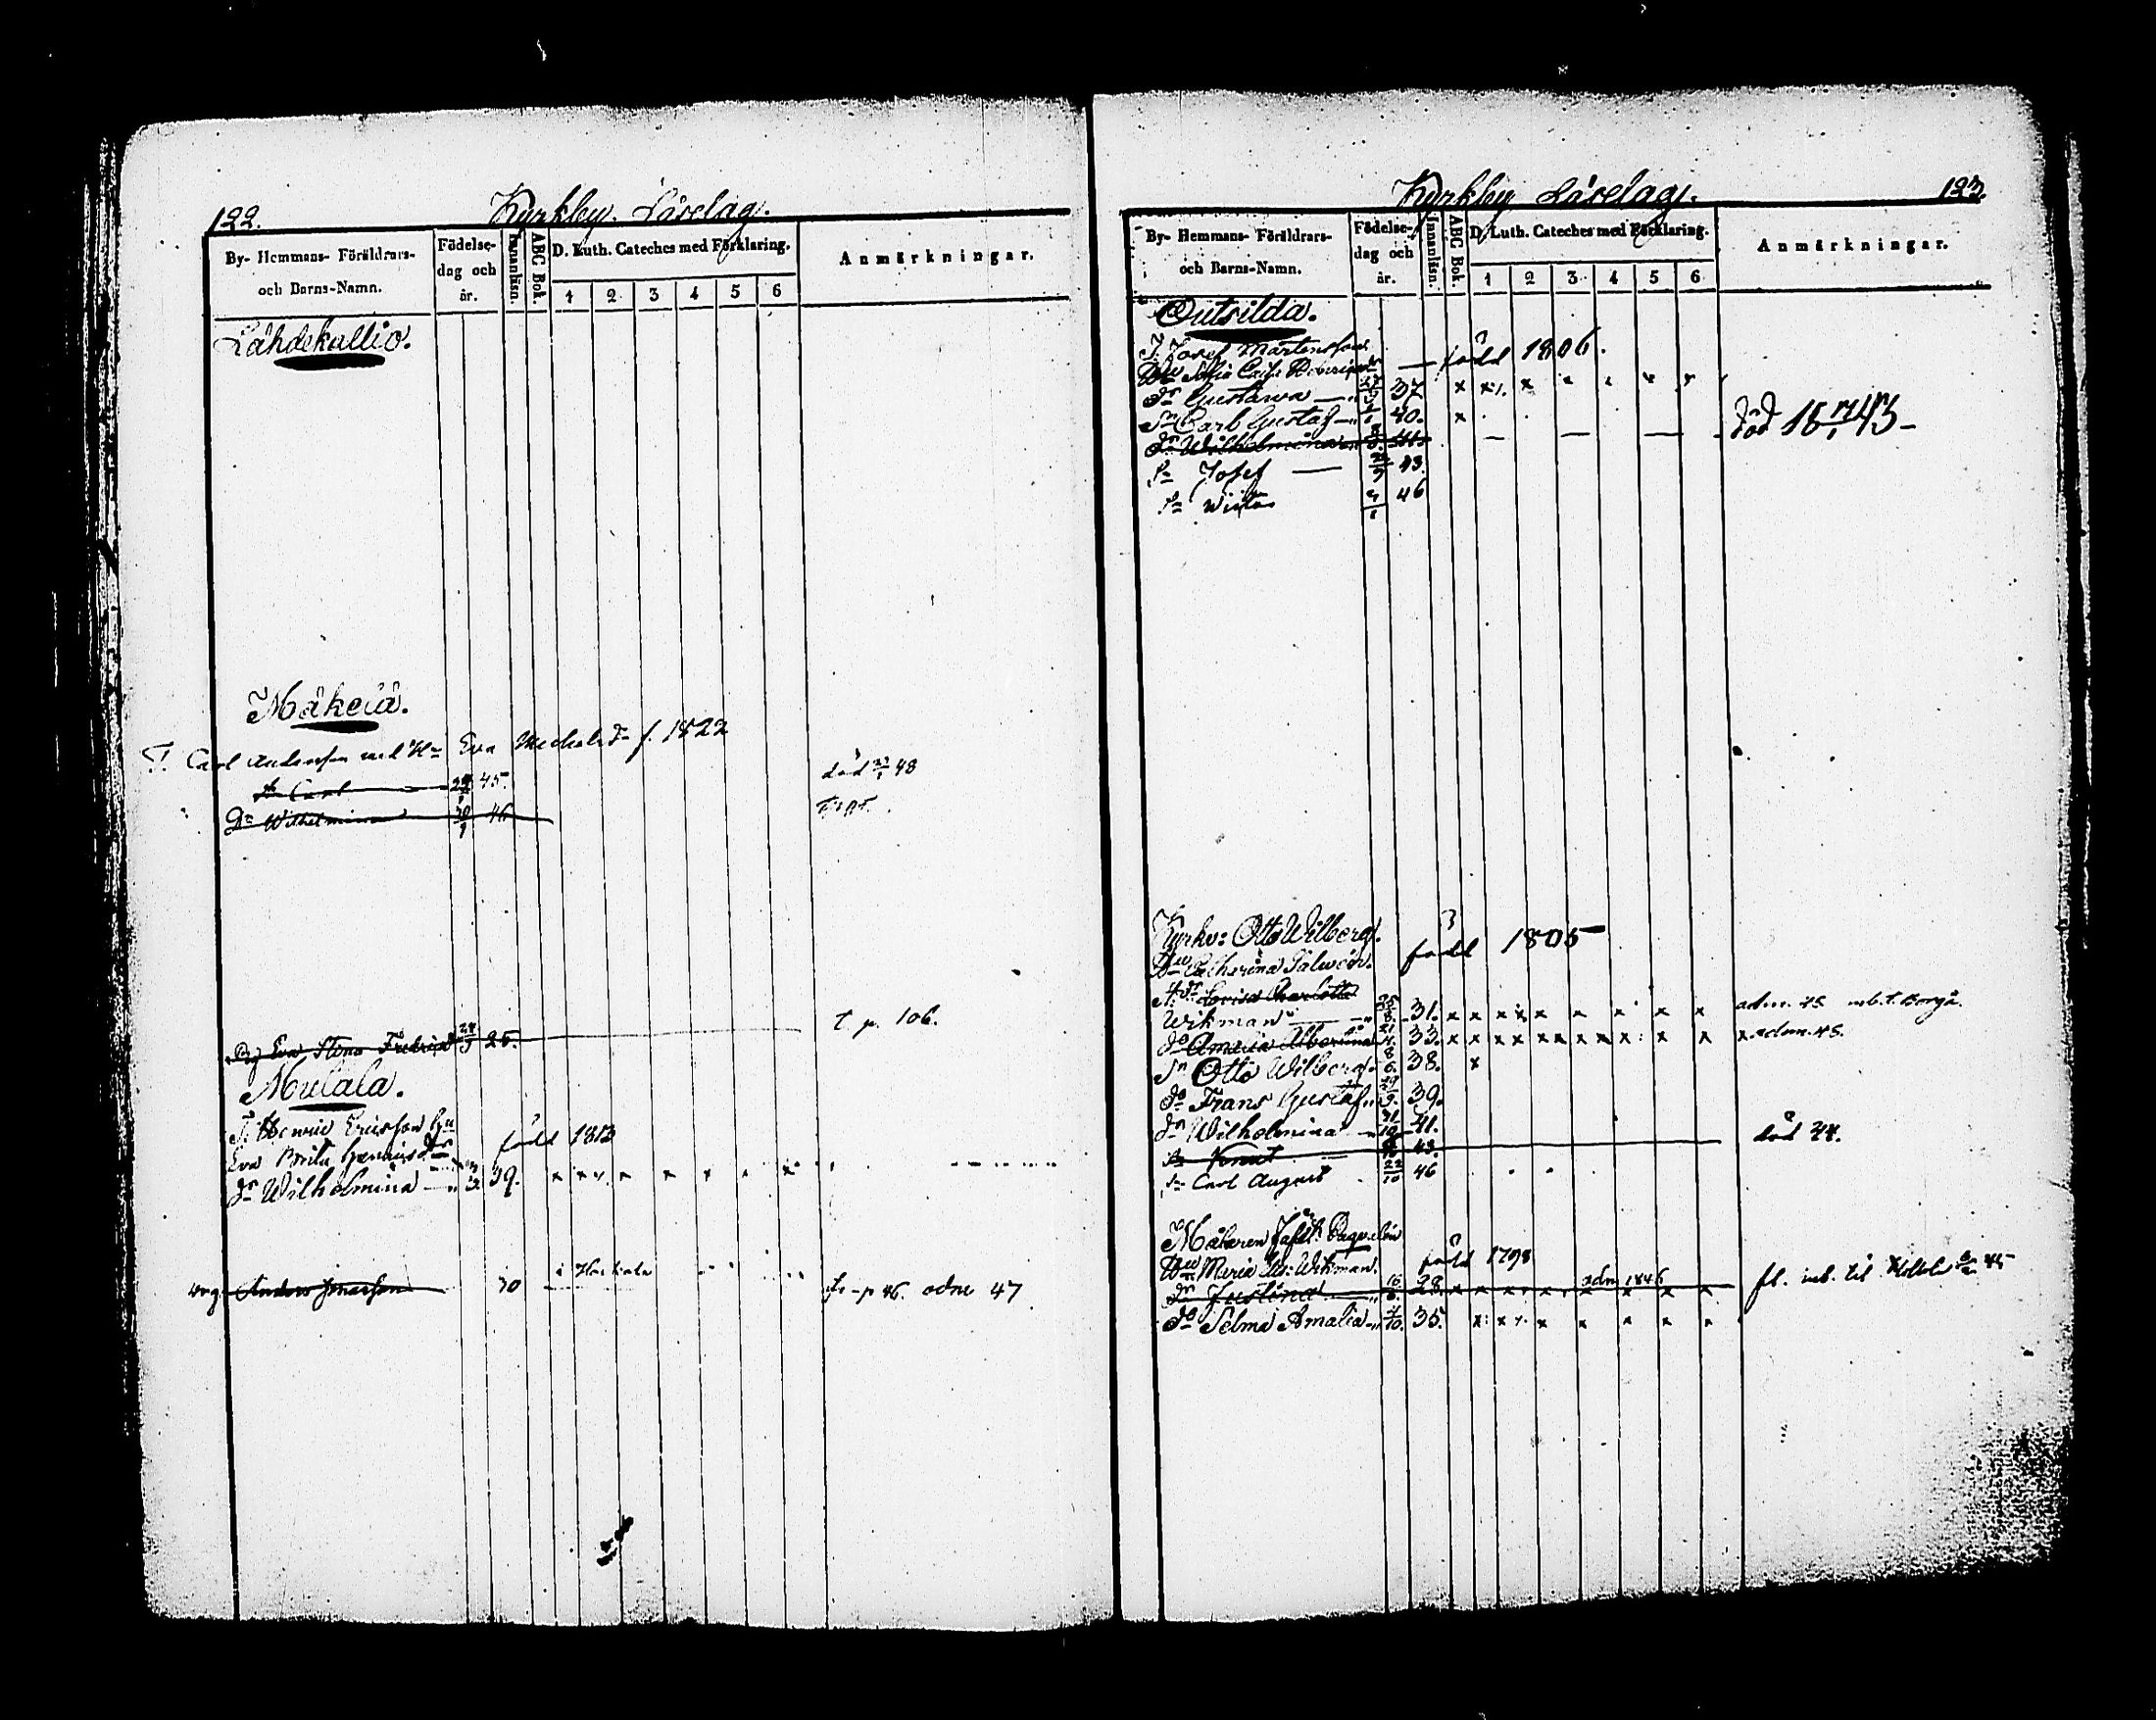 122.
Kyrkby Läselag.
By- Hemmans- Föräldrars- och Barns-Namn.
Födelse- dag och år.
Innanläsn.
ABC Bok.
D. Luth. Cateches med Förklaring.
1 2 3 4 5 6
Anmärkningar.
Lähdekallio.
Mäkelä.
T. Carl Andersson med Hu Eva Michelsdr f. 1822
Sn Carl 45. död 48
Dr Wilhelmina 30/9 46
Pig Eva Stina Fredriksdr 25. t. p. 106.
Mulala.
T. Henric Ericsson Hu
Eva Brita Henricsdr född 1813
Dr Wilhelmina 39. x x x x x x
Anders Jonasson 30 fr. p 46. adm 47
123.
Kyrkby Läselag.
By- Hemmans- Föräldrars- och Barns-Namn.
Födelse- dag och år.
Innanläsn.
ABC Bok.
D. Luth. Cateches med Förklaring.
1 2 3 4 5 6
Anmärkningar.
Outsilda.
T. Josef Mårtensson
Hu Sofia född 1806.
Dr Gustava 37 x x x
Sn Carl Gustaf 40. x
Dr Wilhelmina 41. död 43
Sn Josef 43.
Sn 46
Kyrkv: Otto Wilberg.
Hu Catharina född 1805
Dr Lovisa Charlotta
Wikman 31. x x x x x x x x adm. 45 t. Borgå.
Dr Amalia Albertina 33. x x x x x x x x x adm. 45.
Sn Otto Wilberg 8/6 38. x
Sn Frans Gustaf 39.
Dr Wilhelmina 41.
Sn Knut 43. död 44.
Sn Carl August 22/10 46
Målaren
Hu Maria Wikman. född 1798
Dr Justina 28. x x x x x x adm 1846 fl. 45
Dr Selma Amalia 35. x x x x x x x